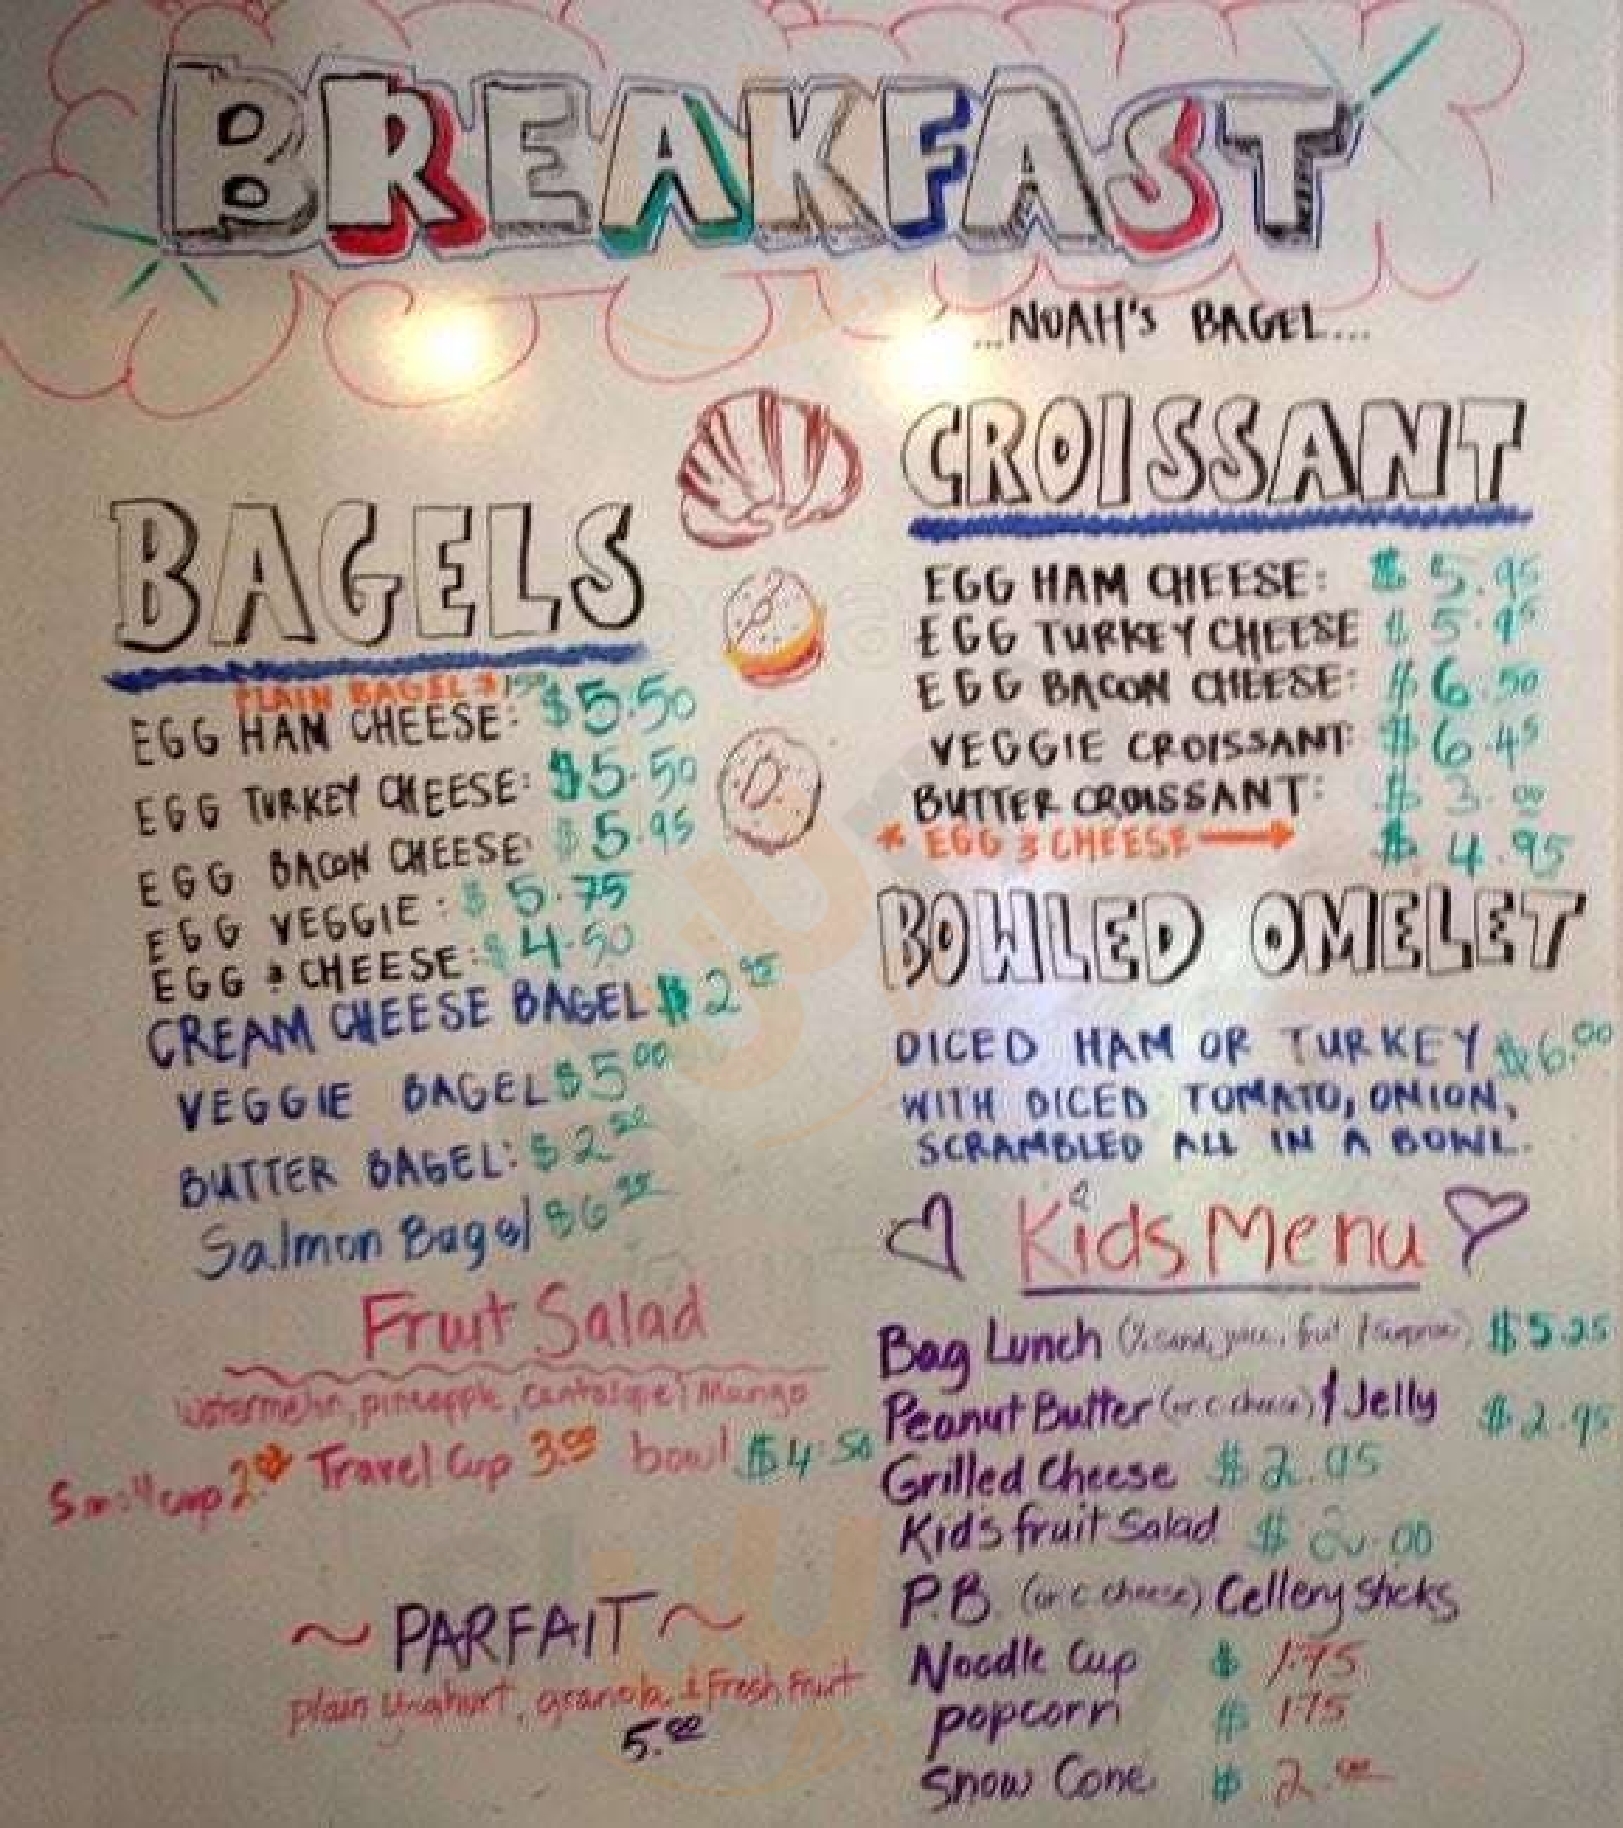 BREAKFAST
...NOAH'S BAGEL...
BAGELS
PLAIN BAGEL $1.50
EGG HAM CHEESE: $5.50
EGG TURKEY CHEESE: $5.50
EGG BACON CHEESE: $5.95
EGG VEGGIE: $5.75
EGG & CHEESE: $4.50
CREAM CHEESE BAGEL: $2.95
VEGGIE BAGEL $5.00
BUTTER BAGEL: $2.50
Salmon Bagel $6.95
Fruit Salad
watermelon, pineapple, cantalope, Mango
Small cup 2 Travel Cup 3.50 bowl $4.50
~ PARFAIT ~
plain yoghurt, granola, & Fresh Fruit
5.00
CROISSANT
EGG HAM CHEESE: $5.95
EGG TURKEY CHEESE $5.95
EGG BACON CHEESE: $6.50
VEGGIE CROISSANT: $6.45
BUTTER CROISSANT: $3.00
* EGG & CHEESE → $4.95
BOWLED OMELET
DICED HAM OR TURKEY $6.00
WITH DICED TOMATO, ONION,
SCRAMBLED ALL IN A BOWL.
Kids Menu
Bag Lunch (½ sand, juice, fruit / surprise) $5.25
Peanut Butter (or c. cheese) & Jelly $2.95
Grilled Cheese $2.95
Kid's fruit Salad
P.B. (or c. cheese) Cellery Sticks
Noodle Cup $1.75
popcorn $1.75
Snow Cone $2.50